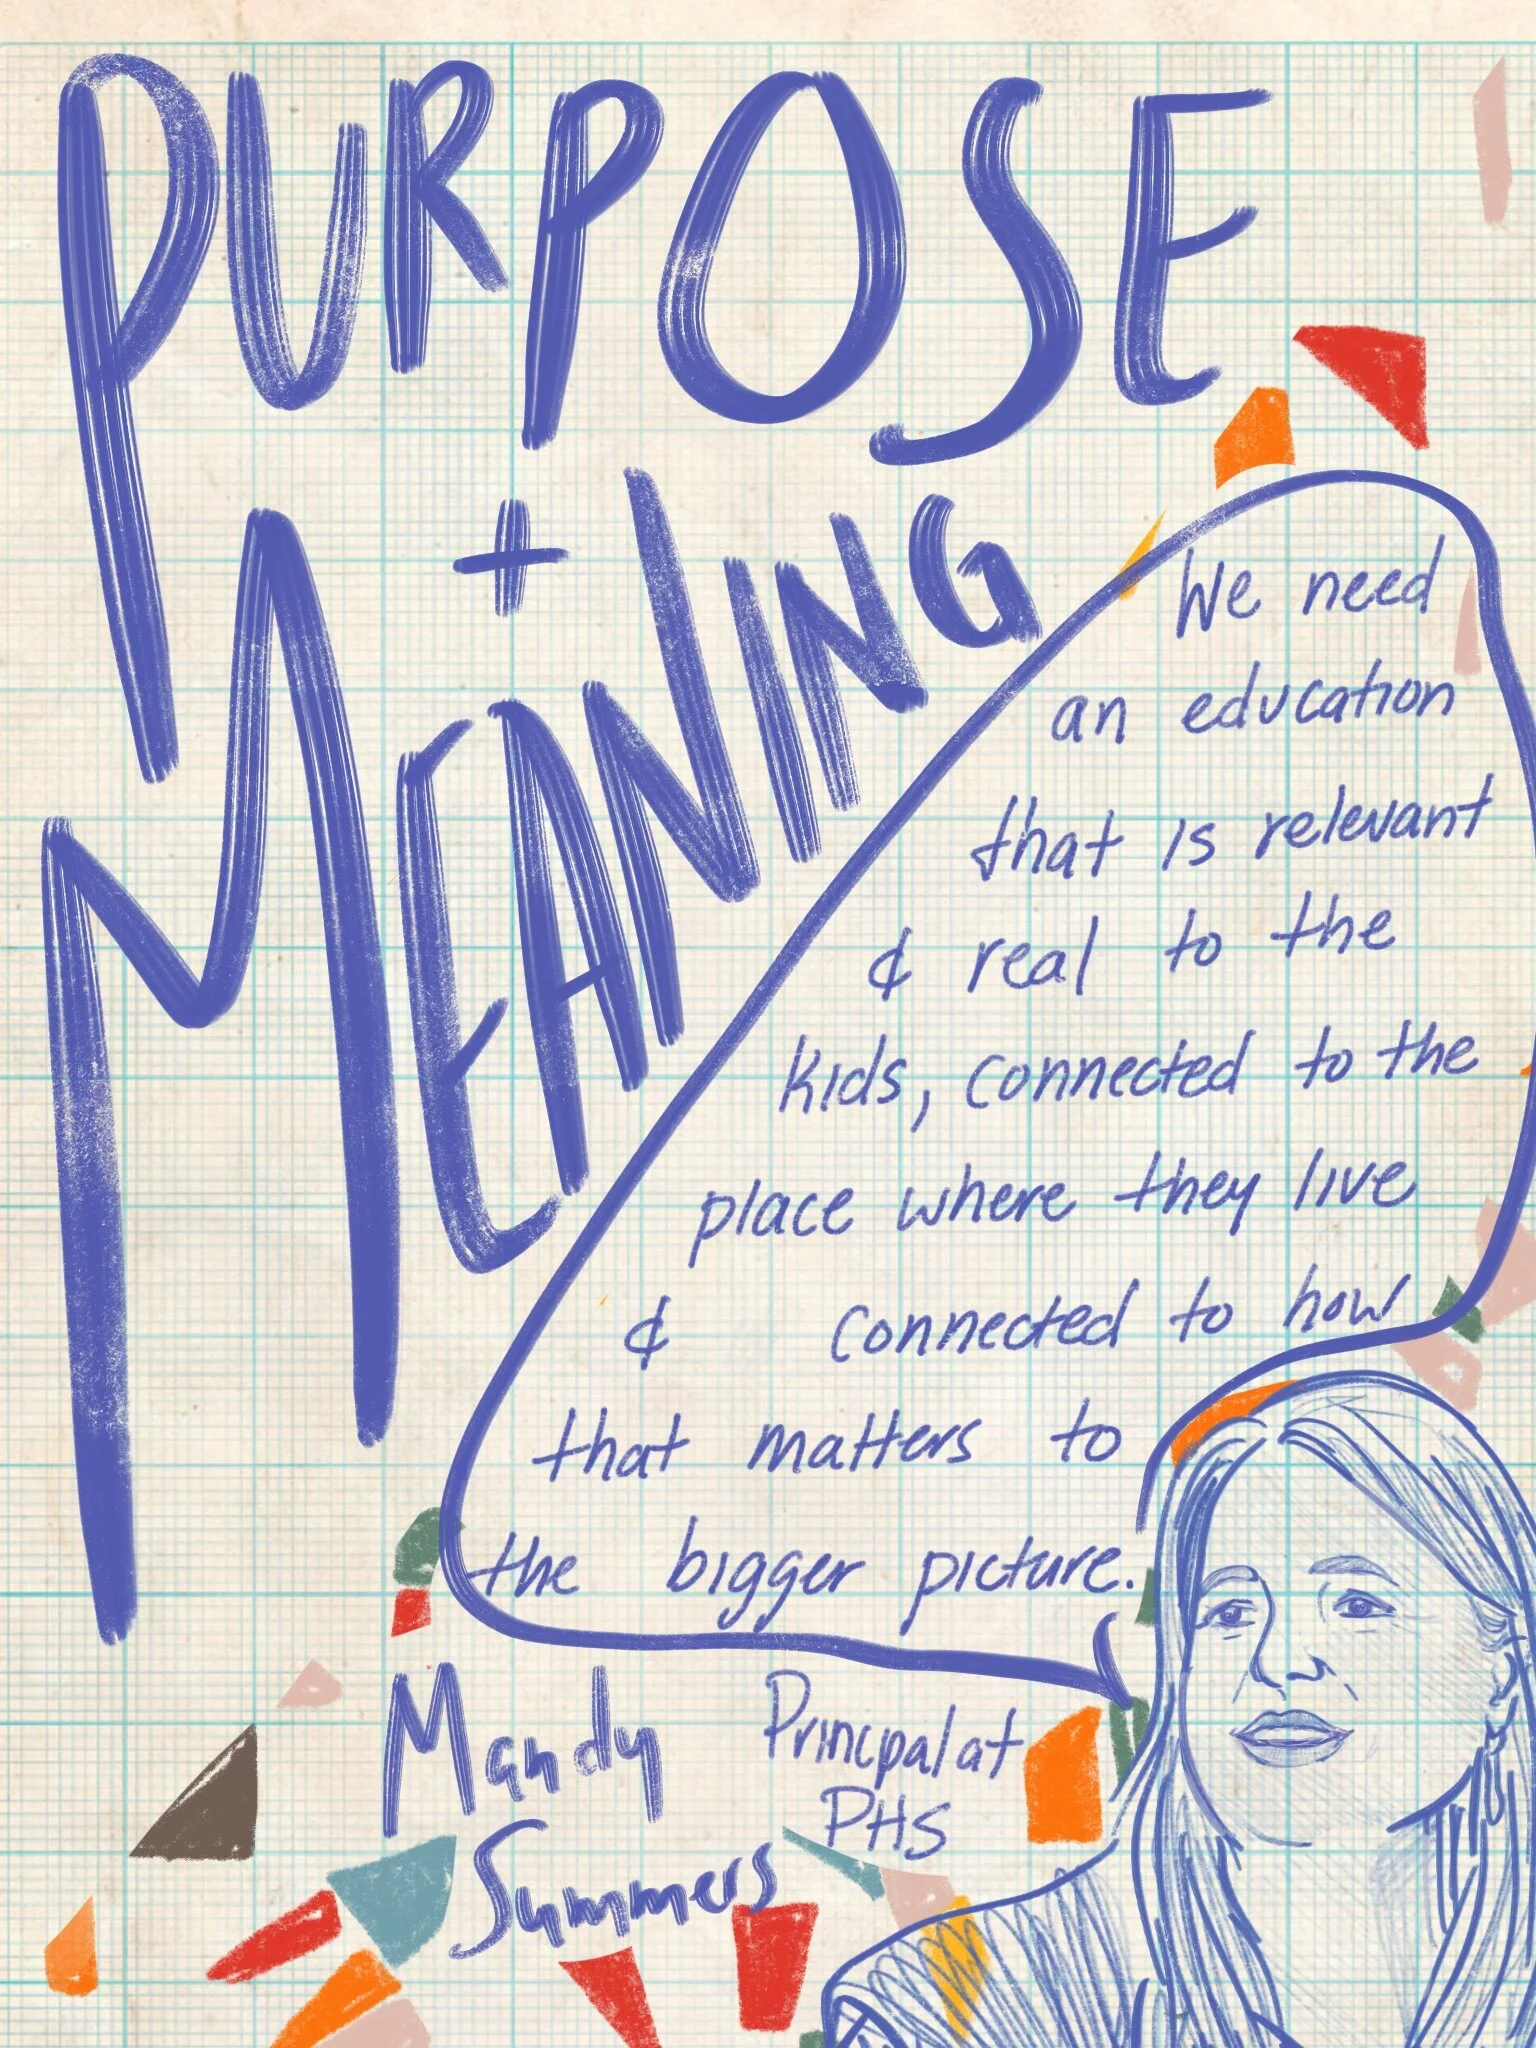 PURPOSE
+
MEANING
We need
an education
that is relevant
& real to the
kids, connected to the
place where they live
& connected to how
that matters to
the bigger picture.
Mandy
Summers
Principal at
PHS